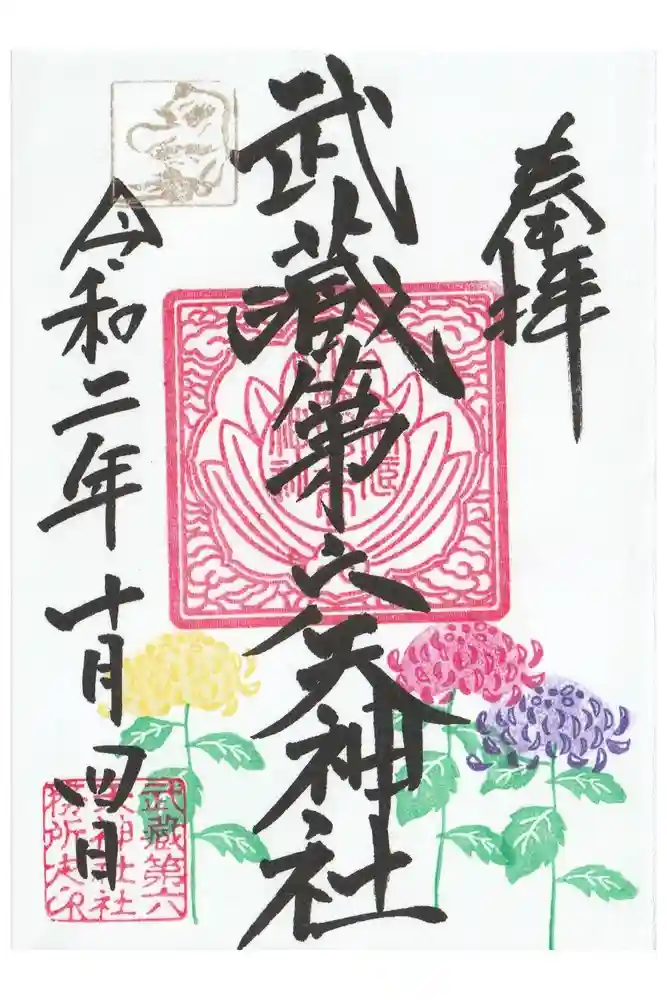 奉拝
武蔵第六天神社
令和二年十月四日
武蔵第六
天神社社
務所之印